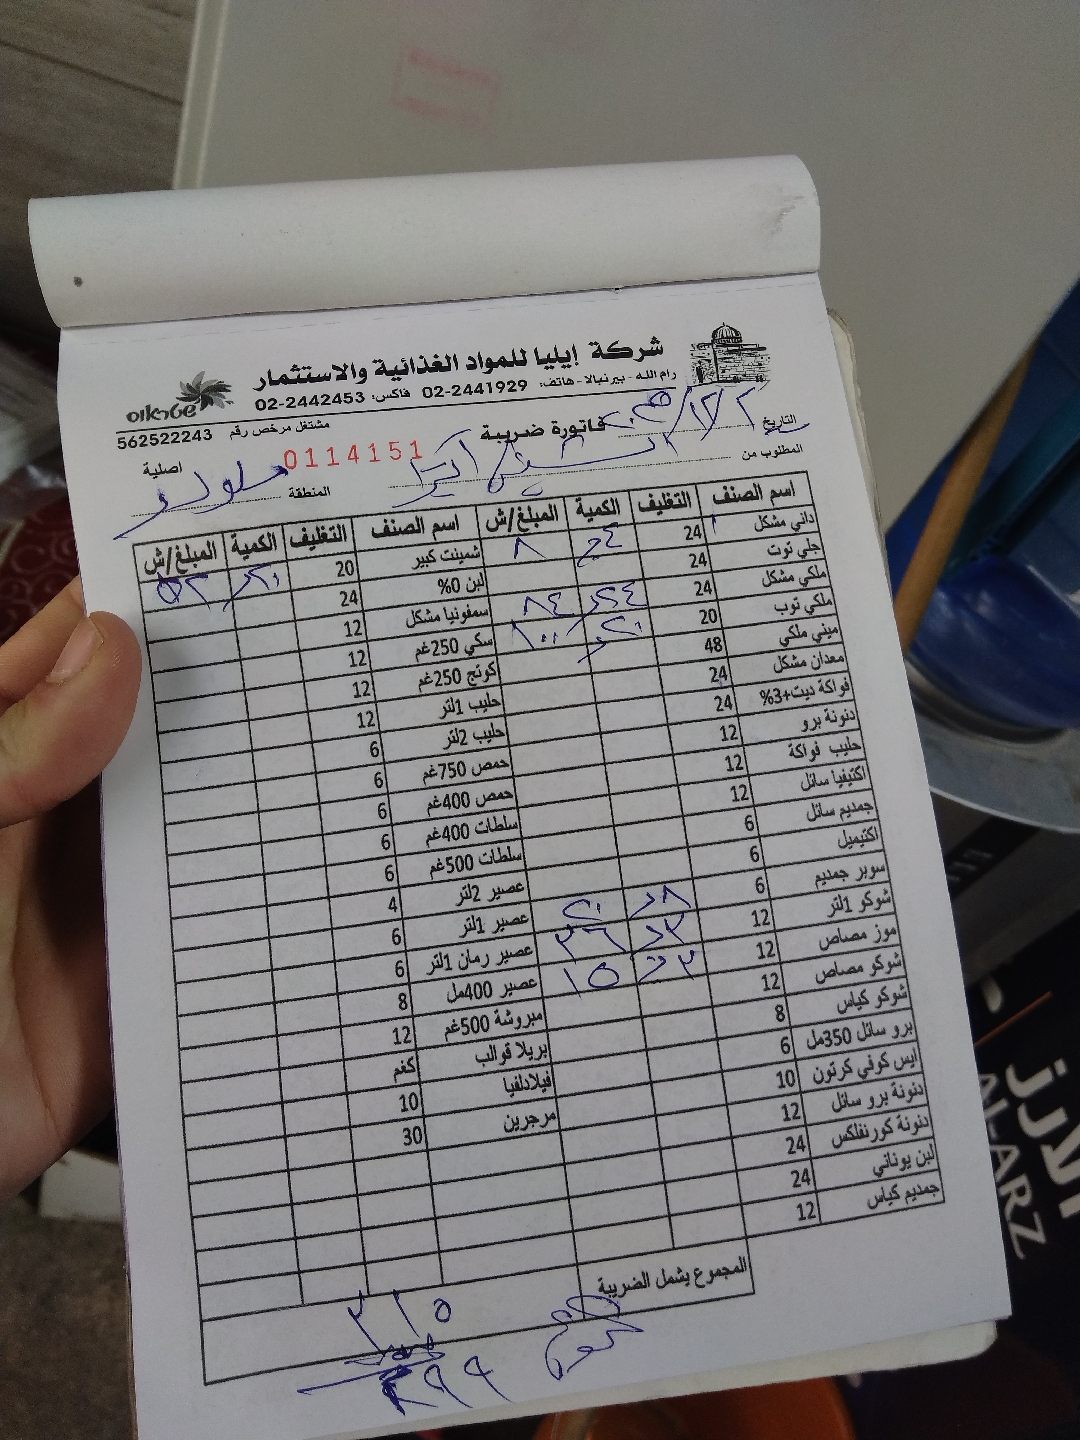 شركة إيليا للمواد الغذائية والاستثمار
رام الله - بيرنبالا - هاتف: 02-2441929 فاكس: 02-2442453
شتراوس
مشتغل مرخص رقم 562522243
التاريخ فاتورة ضريبة 0114151 اصلية
المطلوب من المنطقة
اسم الصنف التغليف الكمية المبلغ/ش اسم الصنف التغليف الكمية المبلغ/ش
داني مشكل 24 ٨ شمينت كبير 20 ٥٢
جلي توت 24 لبن 0% 24
ملكي مشكل 24 ٨٤ سمفونيا مشكل 12
ملكي توب 20 ١٠٠ سكي 250غم 12
ميني ملكي 48 كوتج 250غم 12
معدان مشكل 24 حليب 1لتر 12
فواكة ديت+3% 24 حليب 2لتر 6
دنونة برو 12 حمص 750غم 6
حليب فواكة 12 حمص 400غم 6
اكتيفيا سائل 12 سلطات 400غم 6
جمديم سائل 6 سلطات 500غم 6
اكتيميل 6 عصير 2لتر 4
سوبر جمديم 6 عصير 1لتر 6
شوكو 1لتر 12 عصير رمان 1لتر 6
موز مصاص 12 ٣٦ عصير 400مل 8
شوكو مصاص 12 ١٥ مبروشة 500غم 12
شوكو كياس 8 بريلا قوالب كغم
برو سائل 350مل 6 فيلادلفيا 10
ايس كوفي كرتون 10 مرجرين 30
دنونة برو سائل 12
دنونة كورنفلكس 24
لبن يوناني 24
جمديم كياس 12
المجموع يشمل الضريبة
٣١٥
٢٩٩
الارز
AL ARZ